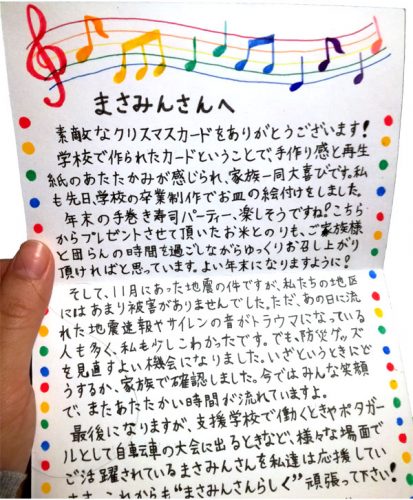 まさみんさんへ
素敵なクリスマスカードをありがとうございます!
学校で作られたカードということで、手作り感と再生
紙のあたたかみが感じられ、家族一同大喜びです。私
も先日、学校の卒業制作でお皿の絵付けをしました。
年末の手巻き寿司パーティー、楽しそうですね!こちら
からプレゼントさせて頂いたお米とのりも、ご家族様
と団らんの時間を過ごしながらゆっくりお召し上がり
頂ければと思っています。よい年末になりますように!
そして、11月にあった地震の件ですが、私たちの地区
にはあまり被害がありませんでした。ただ、あの日に流
れた地震速報やサイレンの音がトラウマになっている
人も多く、私も少しこわかったです。でも、防災グッズ
を見直すよい機会になりました。いざというときにど
うするか、家族で確認しました。今ではみんな笑顔
で、またあたたかい時間が流れていますよ。
最後になりますが、支援学校で働くときやボタガー
ルとして自転車の大会に出るときなど、様々な場面で
ご活躍されているまさみんさんを私達は応援してい
ます。これからも"まさみんさんらしく"頑張って下さい!